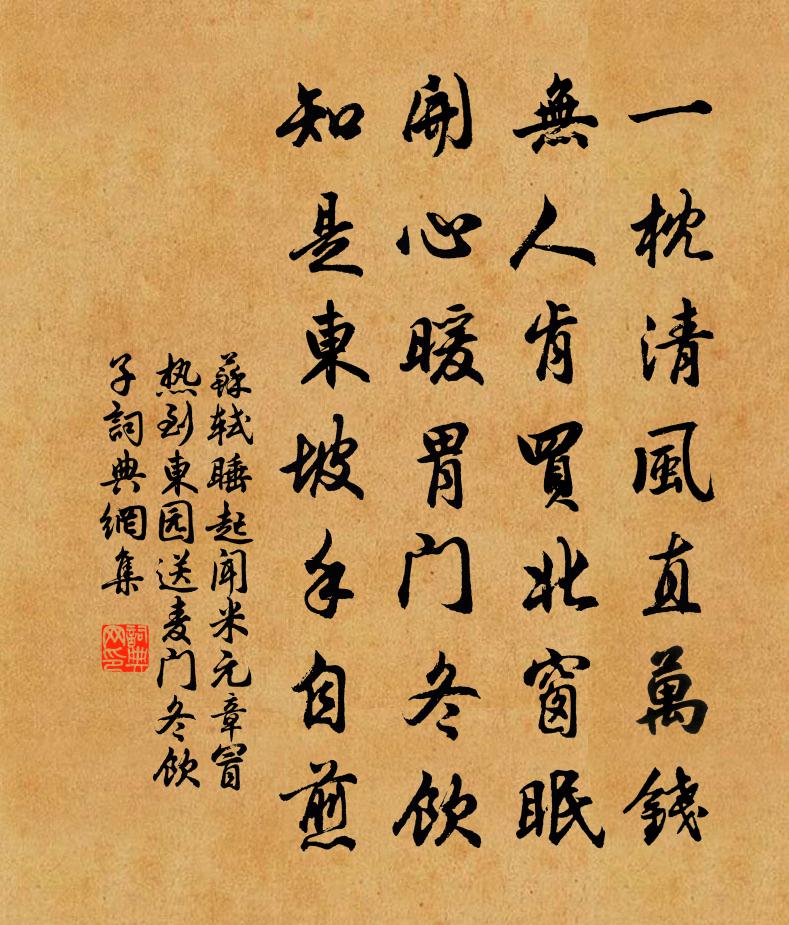 一枕清風直萬錢
無人肯買北窗眠
開心暖胃门冬飲
知是東坡手自煎
蘇軾睡起聞米元章冒
热到東园送麦门冬飲
子詞典網集
詞典
网印